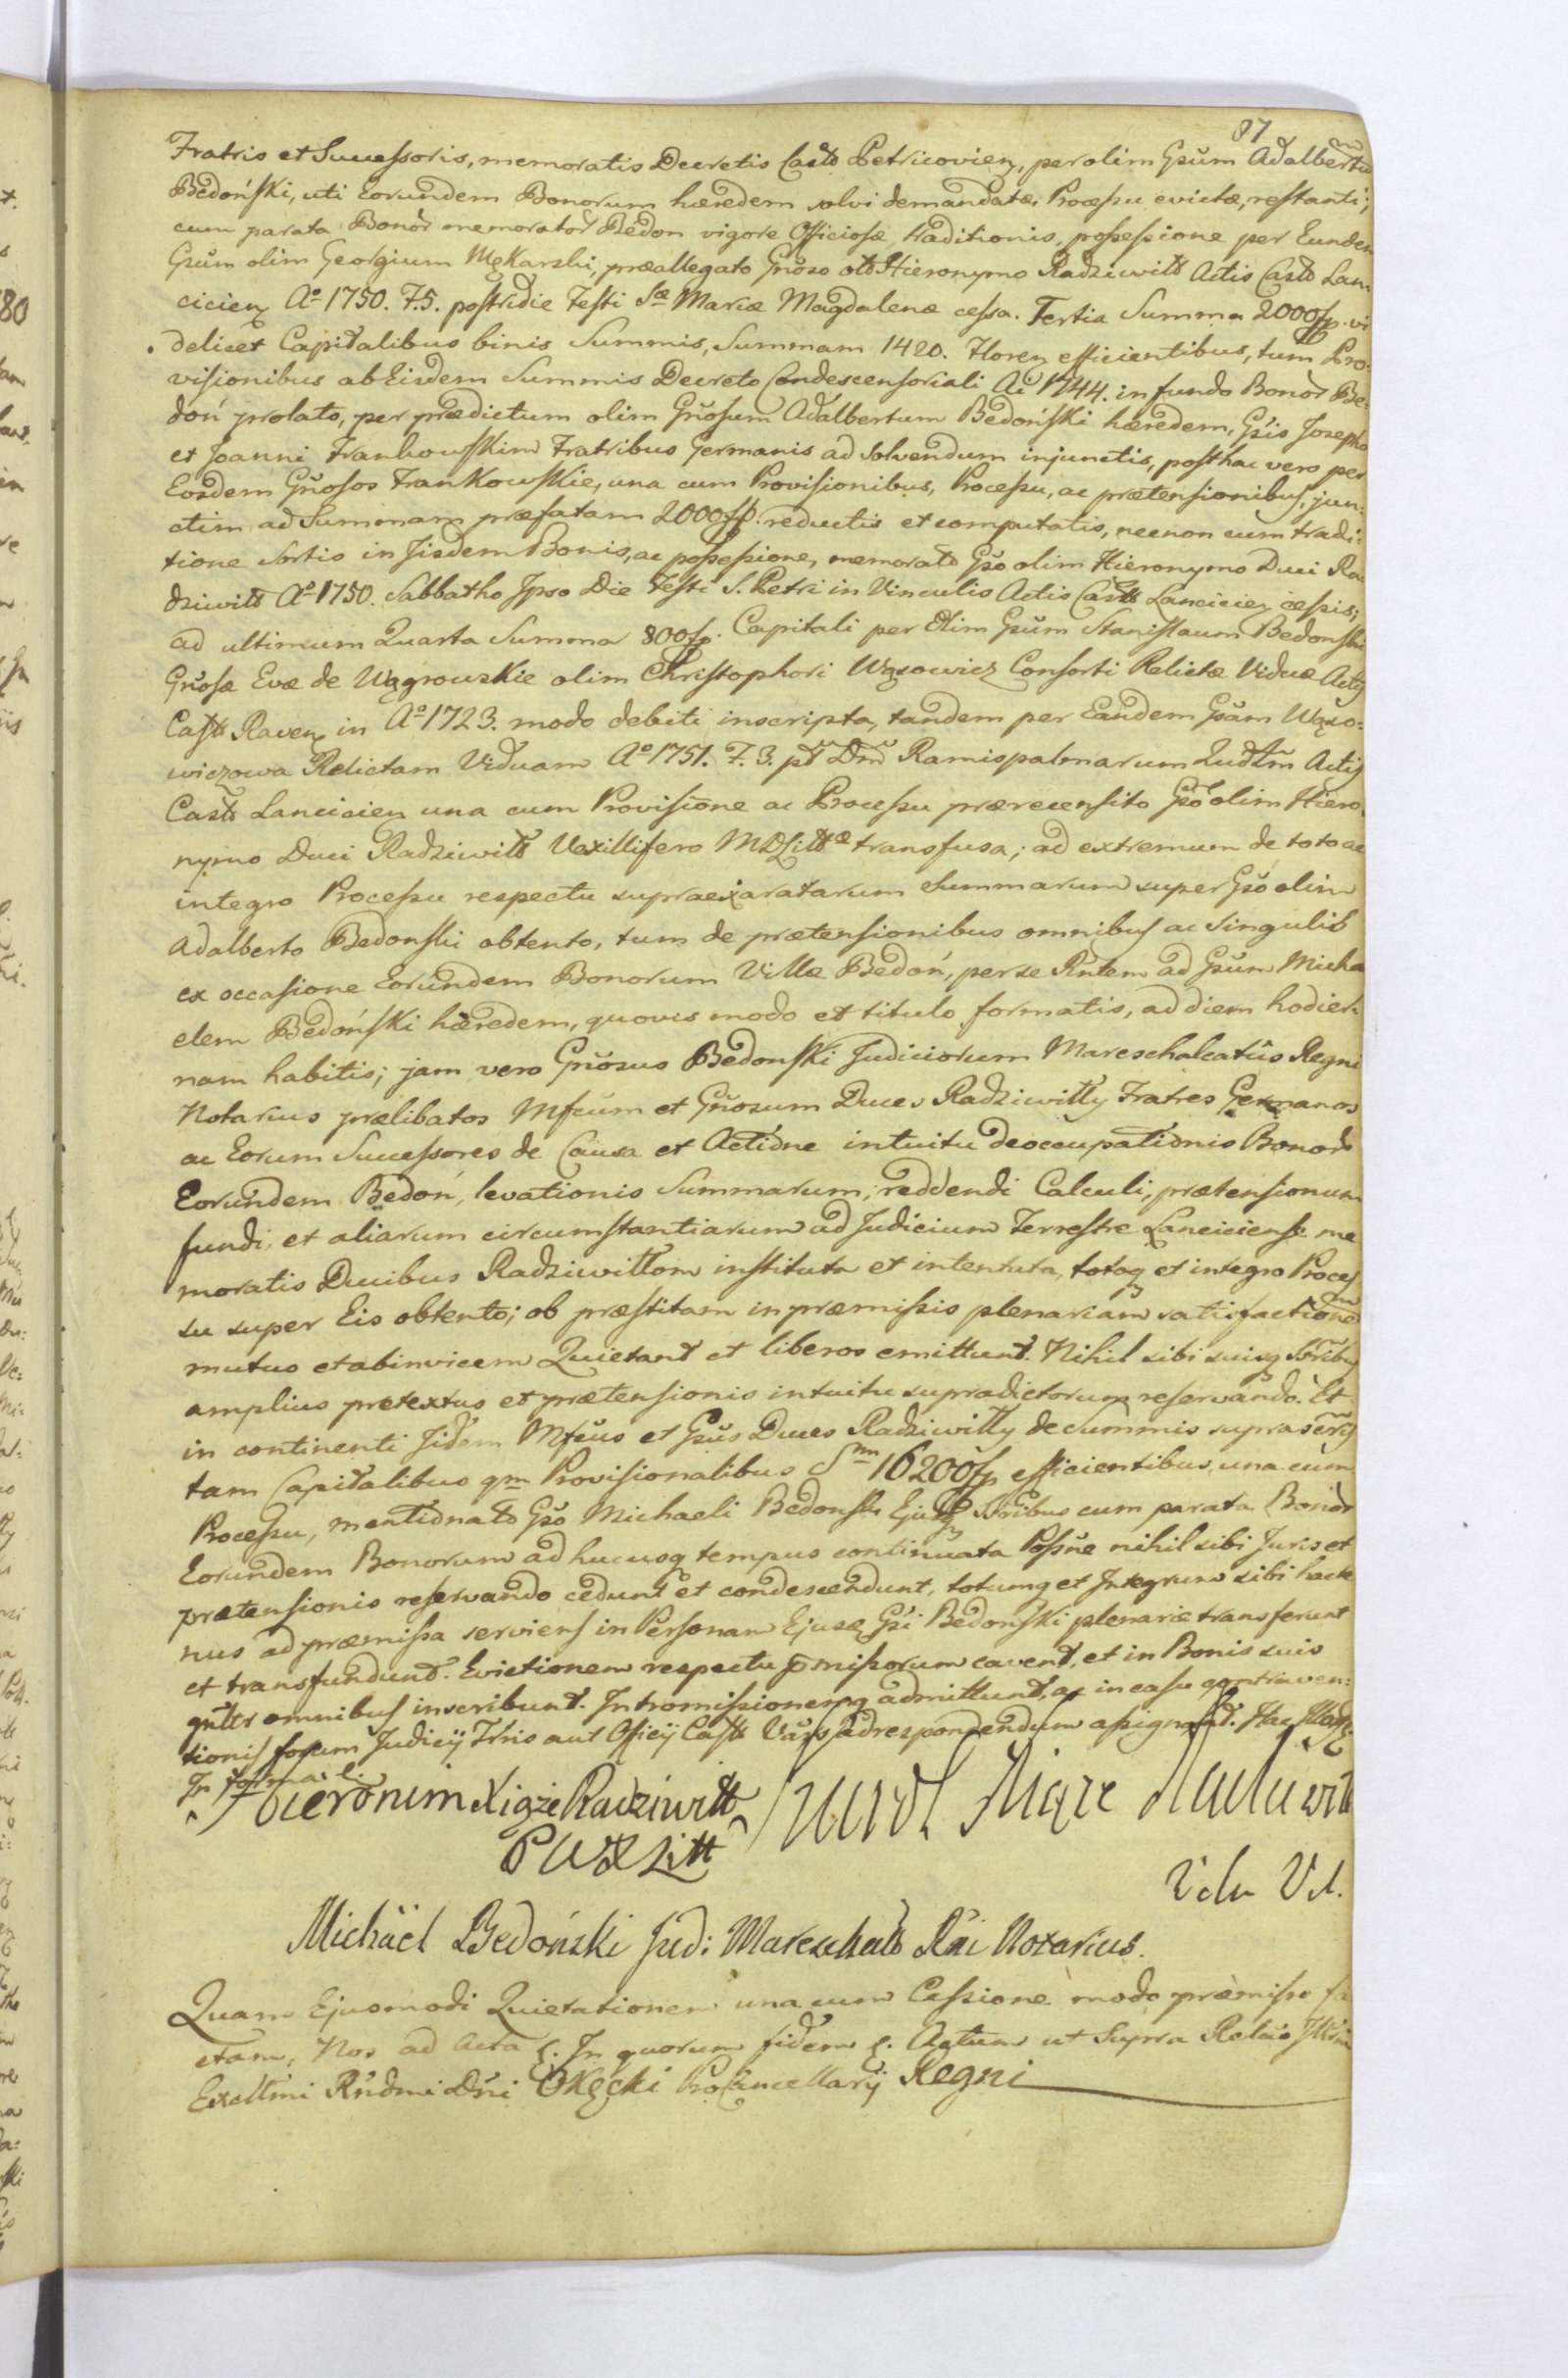 87
Fratris et Successoris, memoratis Decretis Castr Petricovien, per olim Gsum Adalbertu
Bedoński, uti Eorundem Bonorum hæredem solvi demandatæ, Processu evictæ, restanti;
cum parata Bonor memorator Bedon vigore Officiosæ traditionis, possessione per Eunden
Gsum olim Georgium Mękarski, præallegato Gnoso olo Hieronymo Radziwiłł Actis Castr Lan-
cicien Ao 1750. F. 5. postridie Festi Sæ Mariæ Magdalenæ cessa. Tertia Summa 2000 fp. vi
delicet Capitalibus binis Summis, Summam 1420. Floren efficientibus, tum Pro-
visionibus ab Eisdem Summis Decreto Condescensoriali Ai 1744. in fundo Bonor Be-
doń prolato, per prædictum olim Gnosum Adalbertum Bedoński hæredem, Gsis Josepho
et Joanni Frankowskim Fratribus Germanis ad solvendum injunctis, posthac vero per
Eosdem Gnosos Frankowskie, una cum Provisionibus, Processu, ac prætensionibus, jun-
ctim ad Summam præfatam 2000 fp. reductis et computatis, necnon cum tradi-
tione Sortis in Jisdem Bonis, ac possessione, memorato Gso olim Hieronymo Duci Ra
dziwiłł Ao 1750. Sabbatho Ipso Die Festi S. Petri in Vinculis Actis Castr Lancicien cessis;
ad ultimum Quarta Summa 800 fp. Capitali per Olim Gsum Stanislaum Bedonski
Gnosæ Evæ de Wągrowskie olim Christophori Wąsowicz Consorti Relictæ Viduæ Actis
Castr Raven in Ao 1723. modo debiti inscripta, tandem per Eandem Gsam Wąso-
wiczowa Relictam Viduam Ao 1751. F. 3. pt Dm Ramispalmarum Actis
Castr Lancicien una cum Provisione ac Processu prærecensito Gso olim Hiero-
nymo Duci Radziwiłł Vexillifero MDLittæ transfusa; ad extremum de toto ac
integro Processu respectu supraexaratarum Summarum super Gso olim
Adalberto Bedonski obtento, tum de prætensionibus omnibus ac singulis
ex occasione Eorundem Bonorum Villæ Bedoń, per se Rntem ad Gsum Micha
elem Bedoński hæredem, quovis modo et titulo formatis, ad diem hodier-
nam habitis; jam vero Gnosus Bedonski Judiciorum Mareschalcatus Regni
Notarius prælibatos Mfcum et Gnosum Duces Radziwiłły Fratres Germanos
ac Eorum Successores de Causa et Actione intuitu deoccupationis Bonor
Eorundem Bedoń, levationis Summarum, reddendi Calculi, prætensionum
fundi, et aliarum circumstantiarum ad Judicium Terrestre Lanciciense me
moratis Ducibus Radziwiłłom instituta et intentata, totoq et integro Proces
su super Eis obtento; ob præstitam in præmissis plenariam satisfactione
mutuo et ab invicem Quietant et liberos emittunt. Nihil sibi suisq Ssoribus
amplius pretextus et prætensionis intuitu supradictorum reservando. Et
in continenti Jidem Mfcus et Gsus Duces Radziwiłły de Summis suprascrip
tam Capitalibus qm Provisionalibus Smm 16200 fp efficientibus, una cum
Processu, mentionato Gso Michaeli Bedonski Ejusq Ssoribus cum parata Bonor
Eorundem Bonorum ad hucusq tempus continuata Possne nihil sibi Juris et
prætensionis reservando cedunt et condescendunt, totumq et Integrum sibi hacte
nus ad præmissa serviens in Personam Ejusq Gsi Bedoński plenarie transferunt
et transfundunt. Evictionem respectu pmissorum cavent, et in Bonis suis
gnlter omnibus inscribunt. Intromissionemq admittunt, ac in casu contraven-
tionis forum Judicij Tris aut Officij Castr Vars ad respondendum assignant.
In forma.
Hieronim Xiąże Radziwiłł
PWXLitt
Karol Xiąże Radziwiłł
Michäel Bedoński Jud: Mareschalc Rni Notarius.
Quam Ejusmodi Quietationem una cum Cessione modo præmisso fa
ctam, Nos ad Acta. In quorum fidem. Actum ut Supra Relao Illrm
Excellmi Rndmi Dni Okęcki ProCancellarij Regni